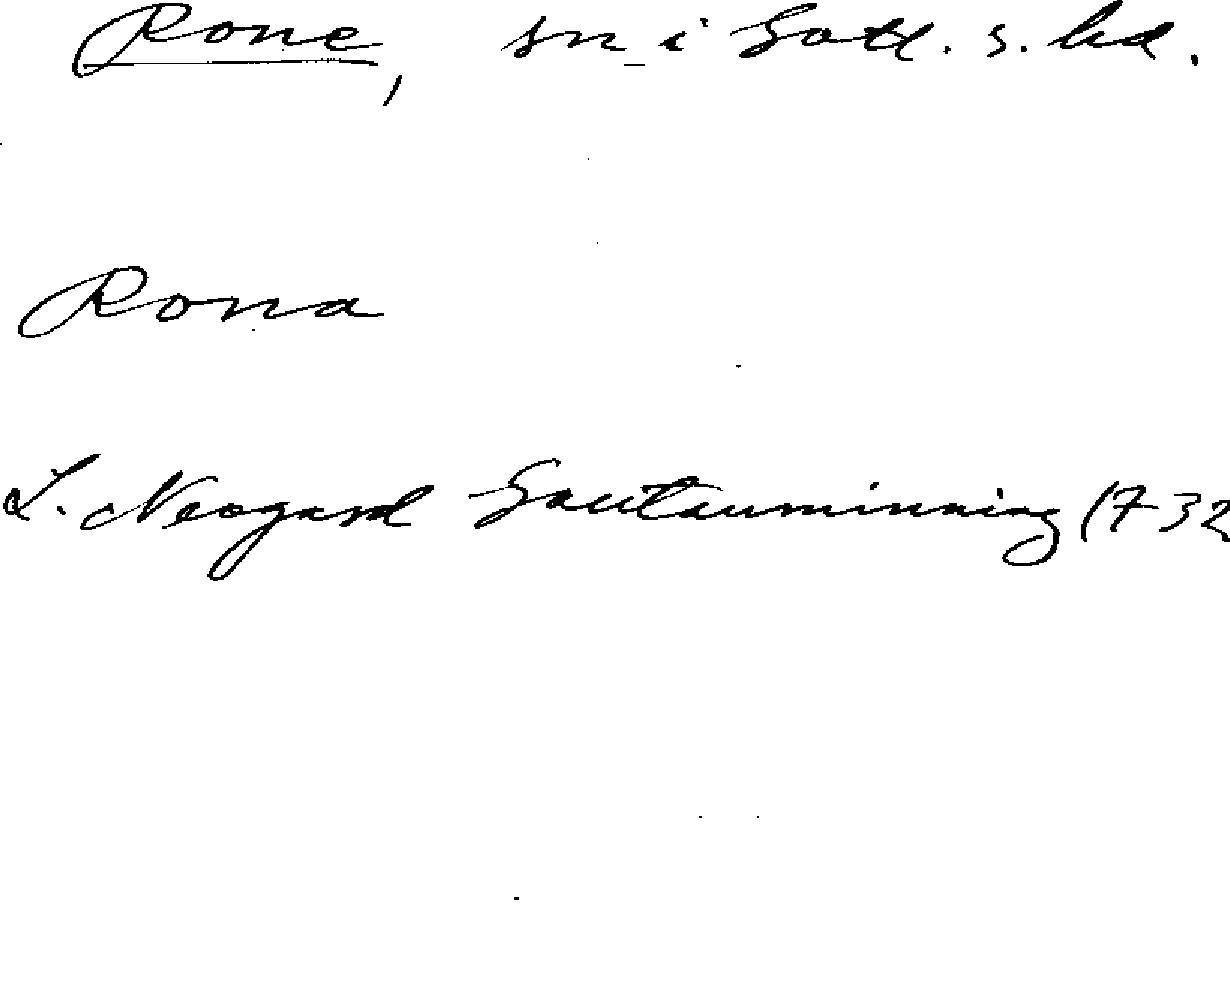 Rone, sn i Gotl. s. hd.
Rona
L. Neogard Gautauminning (732